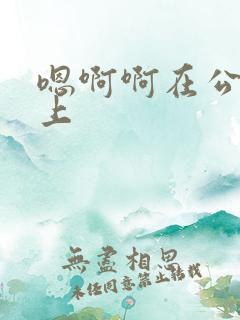 嗯啊啊在公
上
無盡相思
未经同意禁止转载